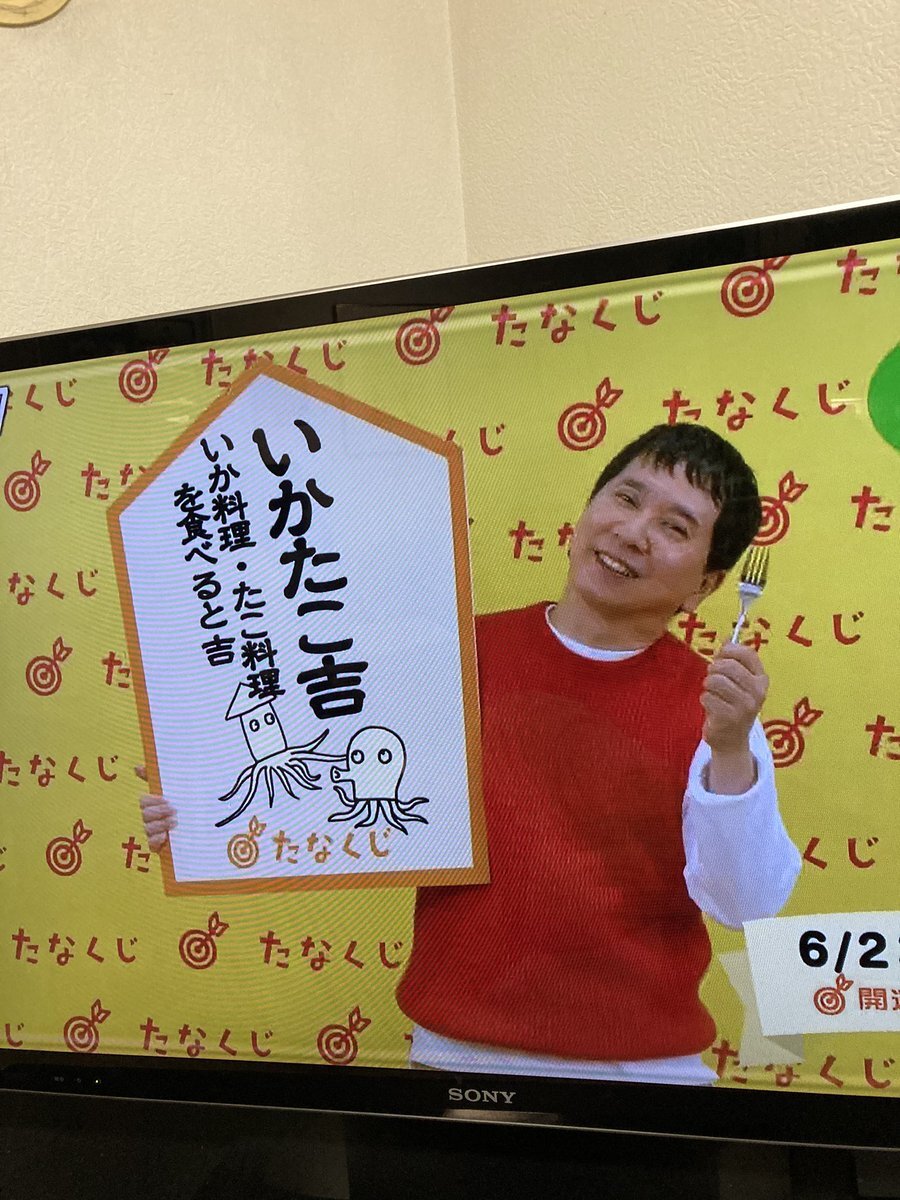 いかたこ吉
いか料理・たこ料理
を食べると吉
たなくじ
たなくじ
たなくじ
たなくじ
たなくじ
たなくじ
たなくじ
たなくじ
たなくじ
たなくじ
6/2
開
SONY